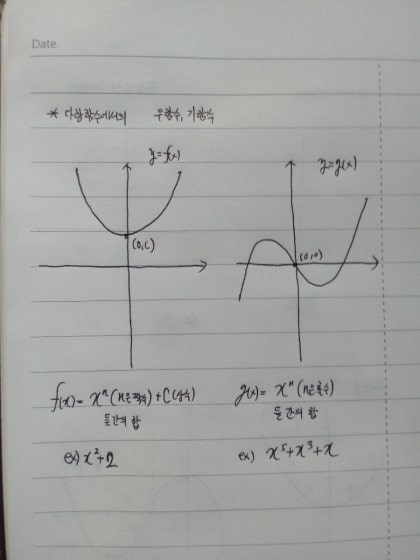 Date.
* 다항함수에서의 우함수, 기함수
y=f(x)
(0,C)
y=g(x)
(0,0)
f(x)= xⁿ (n은 짝수) + C (상수)
들간의 합
ex) x²+2
g(x)= xⁿ (n은 홀수)
들간의 합
ex) x⁵+x³+x